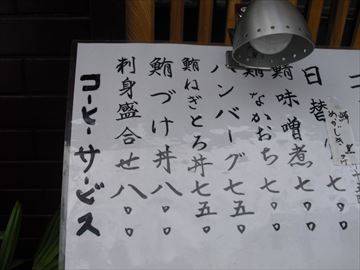 日替
鮪味噌煮 七〇〇
鮪なかおち 七〇〇
ハンバーグ 七五〇
鮪ねぎとろ丼 七五〇
鮪づけ丼 八〇〇
刺身盛合せ 八〇〇
コーヒーサービス